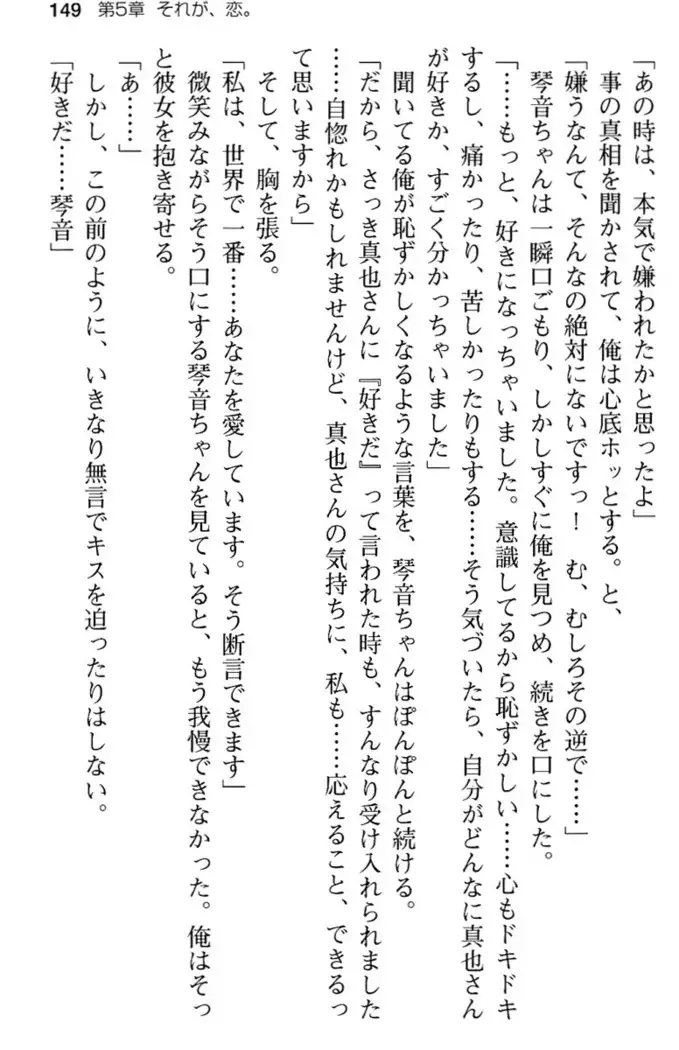 149 第5章 それが、恋。
「あの時は、本気で嫌われたかと思ったよ」
事の真相を聞かされて、俺は心底ホッとする。と、
「嫌うなんて、そんなの絶対にないですっ！　む、むしろその逆で……」
琴音ちゃんは一瞬口ごもり、しかしすぐに俺を見つめ、続きを口にした。
「……もっと、好きになっちゃいました。意識してるから恥ずかしい……心もドキドキ
するし、痛かったり、苦しかったりもする……そう気づいたら、自分がどんなに真也さん
が好きか、すごく分かっちゃいました」
聞いてる俺が恥ずかしくなるような言葉を、琴音ちゃんはぽんぽんと続ける。
「だから、さっき真也さんに『好きだ』って言われた時も、すんなり受け入れられました
……自惚れかもしれませんけど、真也さんの気持ちに、私も……応えること、できるっ
て思いますから」
そして、胸を張る。
「私は、世界で一番……あなたを愛しています。そう断言できます」
微笑みながらそう口にする琴音ちゃんを見ていると、もう我慢できなかった。俺はそっ
と彼女を抱き寄せる。
「あ……」
しかし、この前のように、いきなり無言でキスを迫ったりはしない。
「好きだ……琴音」